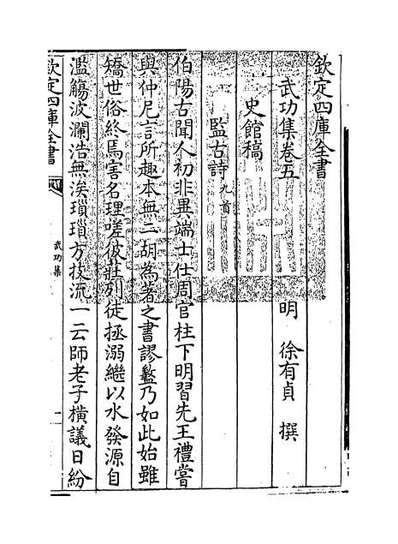 欽定四庫全書
武功集卷五
明 徐有貞 撰
史館稿
監古詩九首
伯陽古聞人初非異端士仕周官柱下明習先王禮嘗
與仲尼言所趣本無二胡為著之書謬盭乃如此始雖
矯世俗終焉害名理嗟彼莊列徒拯溺繼以水發源自
濫觴波瀾浩無涘瑣瑣方技流一云師老子橫議日紛
欽定四庫全書
武功集
一